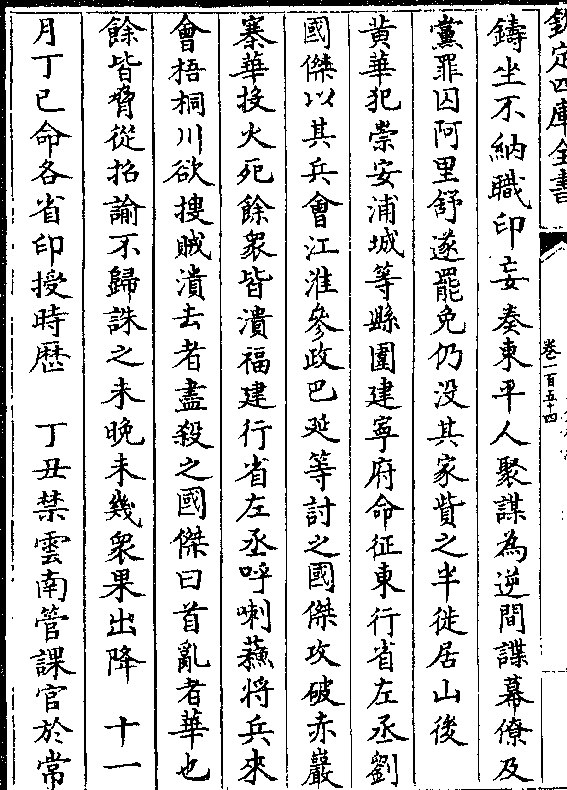 欽定四庫全書
卷一百五十四
鑄坐不納職印妄奏東平人聚謀為逆間諜幕僚及
黨罪囚阿里舒遂罷免仍没其家貲之半徙居山後
黄華犯崇安浦城等縣圍建寧府命征東行省左丞劉
國傑以其兵會江淮參政巴延等討之國傑攻破赤巖
寨華投火死餘衆皆潰福建行省左丞呼喇蘓將兵來
會梧桐川欲搜賊潰去者盡殺之國傑曰首亂者華也
餘皆脅從招諭不歸誅之未晚未幾衆果出降　十一
月丁巳命各省印授時歴　丁丑禁雲南管課官於常